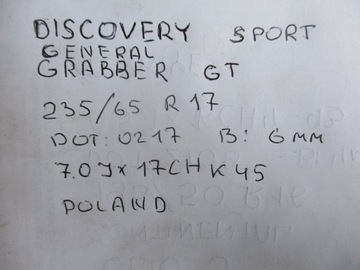 DISCOVERY SPORT
GENERAL
GRABBER GT
235/65 R 17
DOT: 0217 B: 6 MM
7.0Jx17CH K45
POLAND